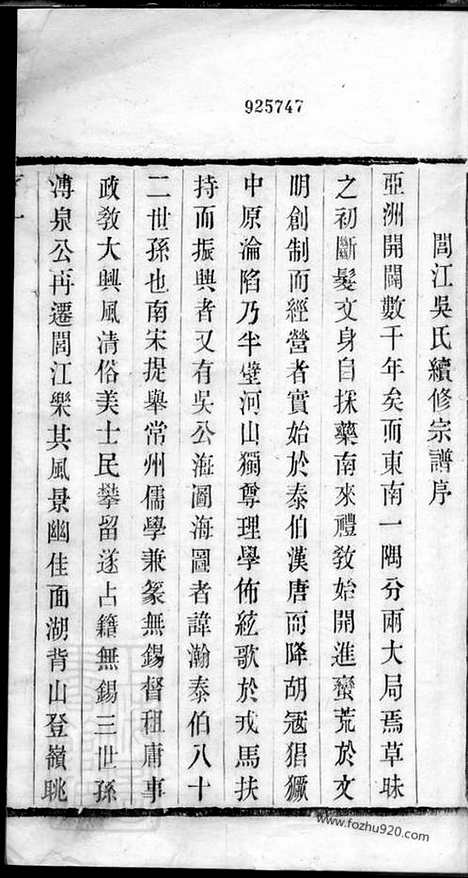 925747
閭江吳氏續修宗譜序
亞洲開闢數千年矣而東南一隅分兩大局焉草昧
之初斷髮文身自採藥南來禮教始開進蠻荒於文
明創制而經營者實始於泰伯漢唐而降胡冦猖獗
中原淪陷乃半壁河山獨尊理學佈絃歌於戎馬扶
持而振興者又有吳公海圖海圖者諱瀚泰伯八十
二世孫也南宋提舉常州儒學兼篆無錫督租庸事
政教大興風清俗美士民攀留遂占籍無錫三世孫
溥泉公再遷閭江樂其風景幽佳面湖背山登嶺眺
www.fozhu920.com